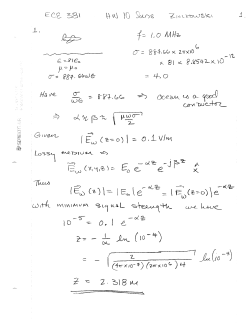 ECE 381 HW 10 Solns Ziolkowski 1.
1.
f = 1.0 MHz
ε = 81ε₀
μ = μ₀
σ = 887.66 ωε
σ = 887.66 × 2π×10⁶
× 81 × 8.8542 × 10⁻¹²
= 4.0
Have σ/ωε = 887.66 ⇒ ocean is a good conductor
⇒ α ≈ β ≈ √(μωσ/2)
Given |E⃗ω(z=0)| = 0.1 V/m
Lossy medium ⇒
E⃗ω(x,y,z) = E₀ e^(-αz) e^(-jβz) x̂
Thus
|E⃗ω(z)| = |E₀| e^(-αz) = |E⃗ω(z=0)| e^(-αz)
with minimum signal strength we have
10⁻⁵ = 0.1 e^(-αz)
z = - 1/α ln (10⁻⁴)
= - √(2/((4π×10⁻⁷)(2π×10⁶)4)) ln(10⁻⁴)
z = 2.318 m